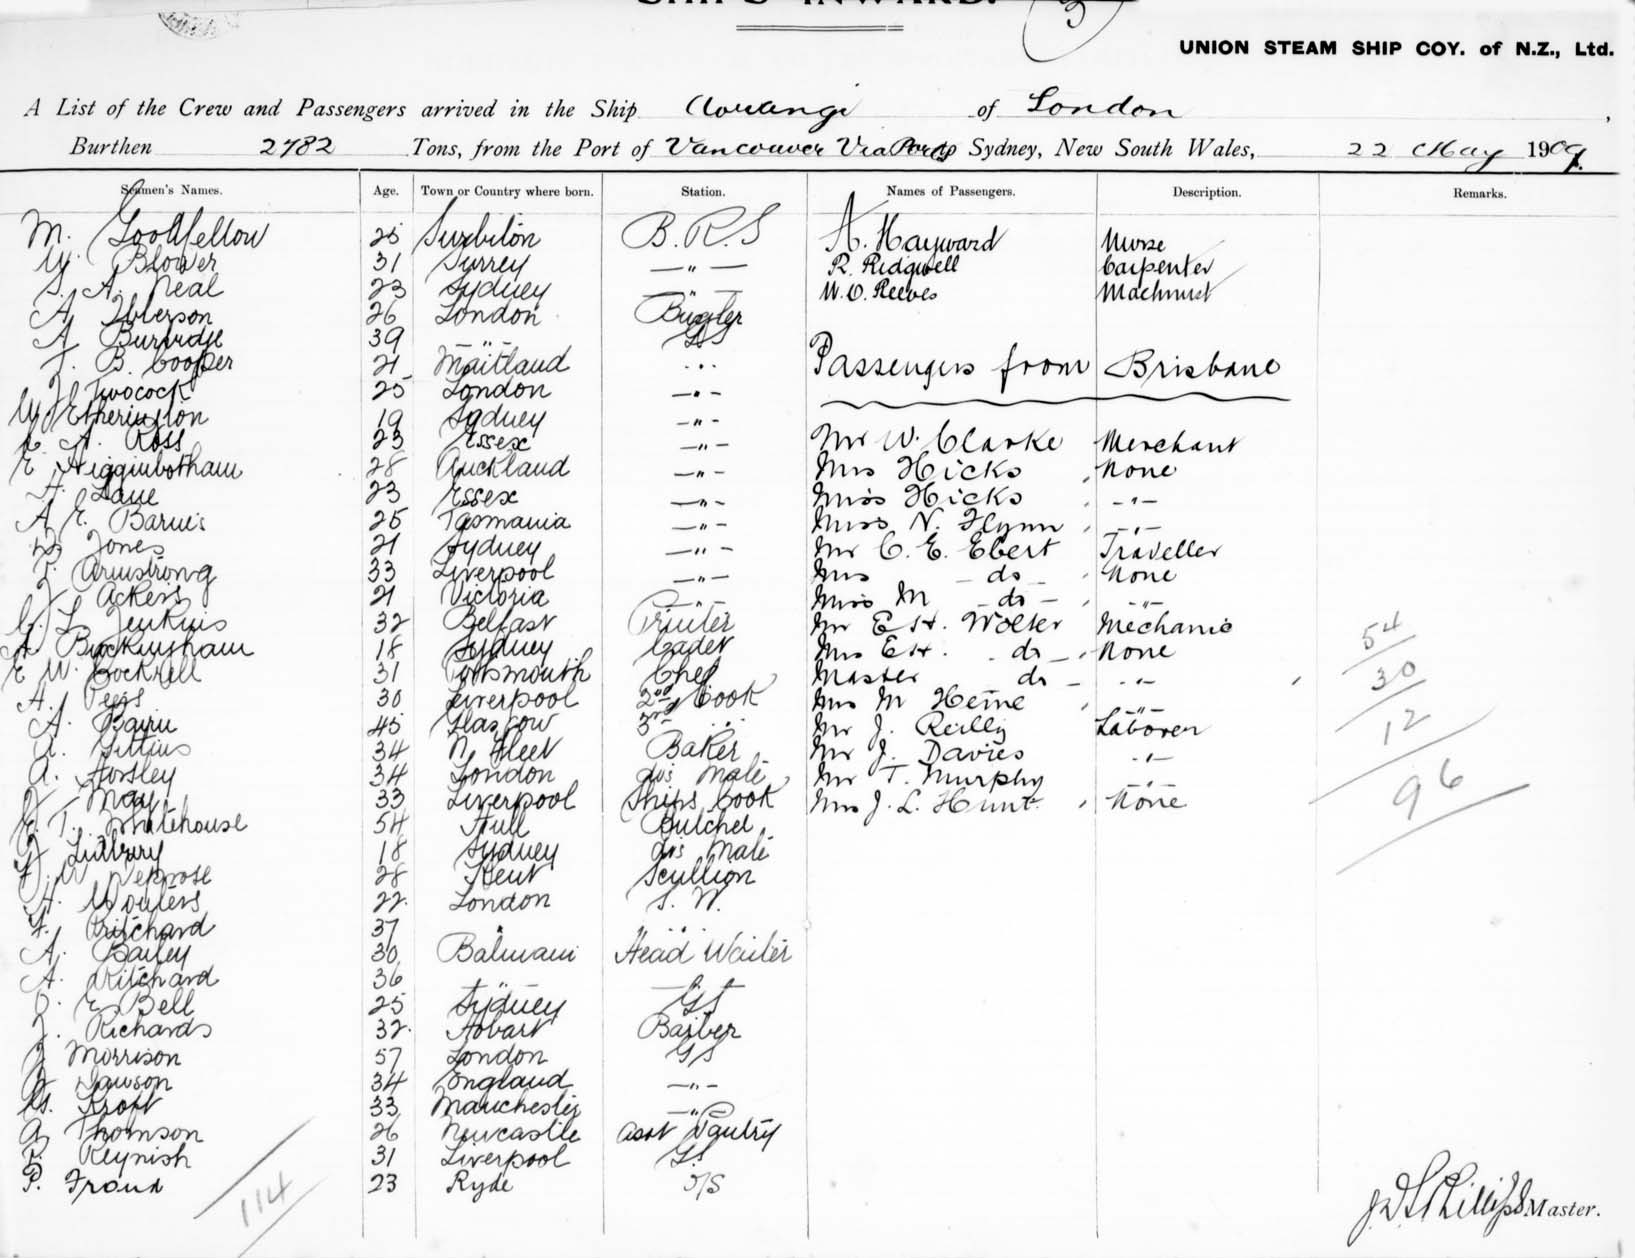 SHIPS INWARD.
UNION STEAM SHIP COY. of N.Z., Ltd.
A List of the Crew and Passengers arrived in the Ship Aorangi of London,
Burthen 2782 Tons, from the Port of Vancouver Via Ports to Sydney, New South Wales, 22 May 1909.
Seamen's Names. Age. Town or Country where born. Station. Names of Passengers. Description. Remarks.
M. Goodfellow 25 Surbiton B.R.S A. Hayward Nurse
W. Blower 31 Surrey —"— R. Ridgwell Carpenter
S. A. Neal 23 Sydney —"— W.O. Reeves Machinist
A. Iberson 26 London Bugler
A Burridge 39 -"- GS
J. B. Cooper 21 Maitland "
J Twocock 25 London —"-
Passengers from Brisbane
W Etherington 19 Sydney —"-
A. Ross 23 Essex —"- Mr W. Clarke Merchant
E Higginbotham 28 Auckland —"- Mrs Hicks None
A. Lane 23 Essex —"- Miss Hicks -"-
A E. Barnes 25 Tasmania —"- Miss N. Flynn -"-
Jones 21 Sydney —"- Mr C. E. Ebert Traveller
T. Armstrong 33 Liverpool —"- Mrs do None
J Ackers 21 Victoria -"- Miss M do -"-
C. L. Jenkins 32 Belfast Printer Mr E.H. Wolter Mechanic
A Buckingham 18 Sydney Cadet Mrs E.H. do None
E W. Cockrell 31 Portsmouth Chef Master do -"-
A. Pegs 30 Liverpool 2nd Cook Mrs M Heine -"-
A. Bain 45 Glasgow 3rd " Mr J. Reilly Laborer
A. 34 N. Fleet Baker Mr J. Davies -"-
A. Horsley 34 London do's mate Mr T. Murphy -"-
J May 33 Liverpool Ships Cook Mrs J. L. Hunt None
E. T. Whitehouse 54 Hull Butcher
18 Sydney do's mate
W 28 Kent Scullion
A. Wouters 22 London S. W.
A. Pritchard 37 " "
A. Bailey 30 Balmain Head Waiter
A. Pritchard 36 -"-
E Bell 25 Sydney GS
J. Richards 32 Hobart Barber
J Morrison 57 London GS
Dawson 34 England —"-
Kroft 33 Manchester —"-
A Thomson 26 Newcastle Asst Pantry
Reynish 31 Liverpool G.S
P. Froud 23 Ryde
54
30
12
96
114
J D S Phillips Master.